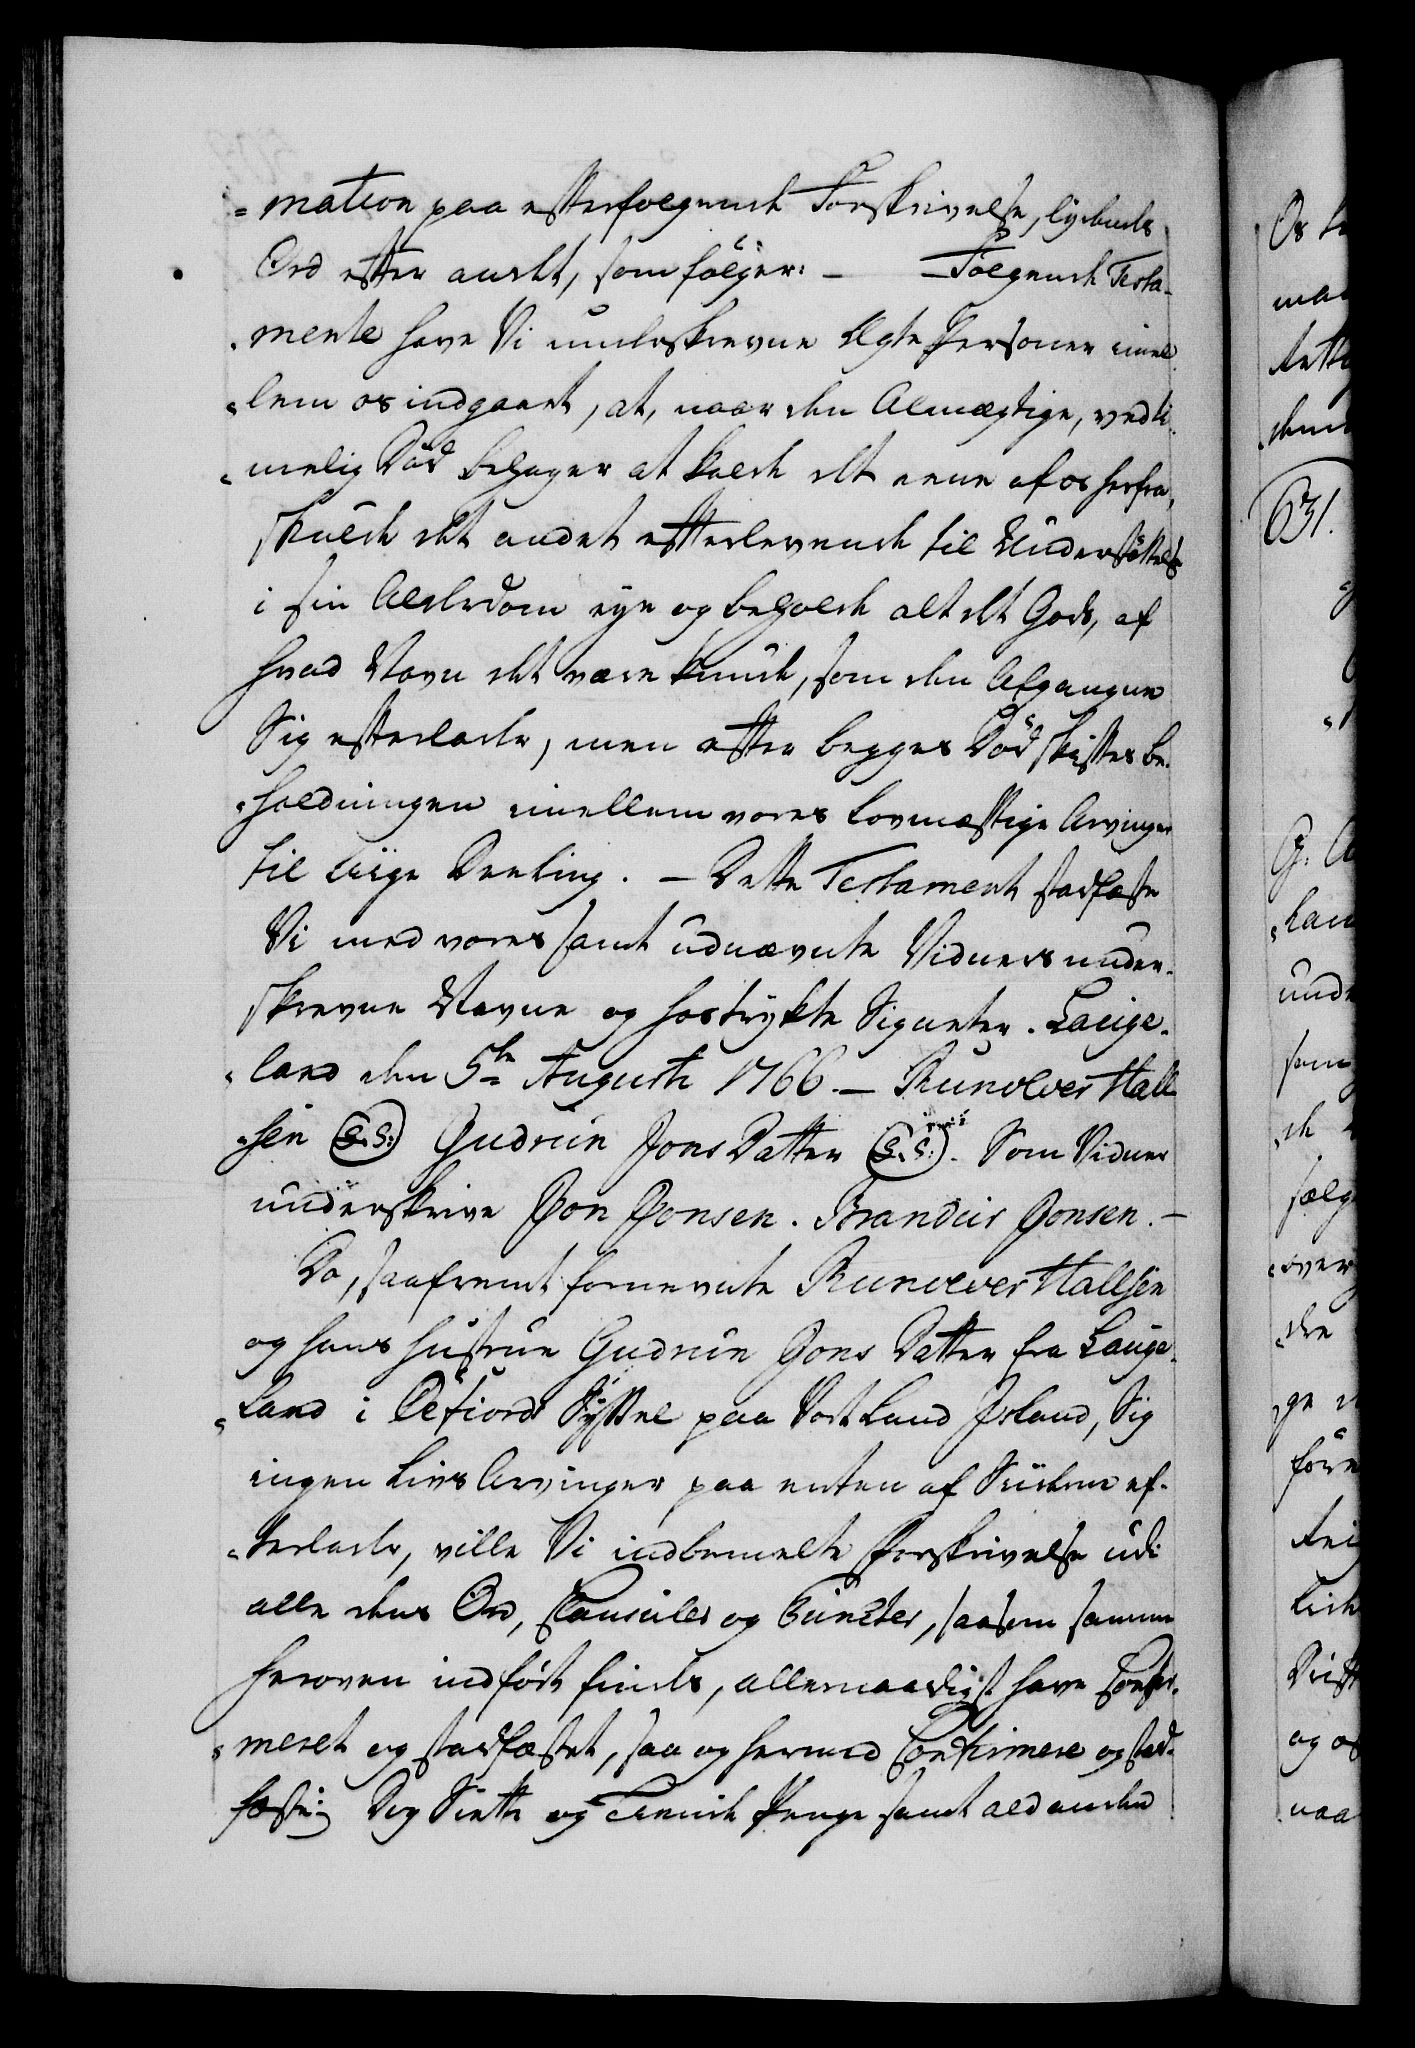 =mation paa efterfølgende Forskrivelse, lydende
Ord efter andet, som følger: — Følgende Testa-
mente have Vi underskrevne Ægte Personer imel
lem os indgaaet, at, naar den Almægtige, ved ti
melig Död behager at kalde det eene af os herfra,
skulde det andet efterlevende til Understöttelse
i sin Alderdom eye og beholde alt det Gods, af
hvad Navn det være kunde, som den Afgangne
Sig efterlader, men efter begges Död skiftes be-
holdningen imellem vores Lovmæssige Arvinger
til liige Deeling. — Dette Testament stadfæste
Vi med vores samt udnævnte Vidners under-
skrevne Navne og hostrykte Signeter. Lauge-
land den 5te Augusti 1766. — Runolver Hall
sen (L.S:) Gudrun Jons Datter (L.S:). Som Vidner
underskrive Jon Jonsen. Brandur Jonsen. —
Da, saafremt fornevnte Runolver Hallsen
og hans Hustrue Gudrun Jons Datter fra Lauge-
land i Öefiords Syssel paa Vort Land Island, Sig
ingen Livs Arvinger paa enten af Siiderne ef-
terlader, ville Vi indbemelte Forskrivelse udi
alle dens Ord, Clausuler og Puncter, saasom samme
heroven indfört findes, allernaadigst have Confir-
meret og stadfæstet, saa og hermed Confirmere og stad-
fæste; Dog Siette og Tiende Penge samt ald anden
Os
631.